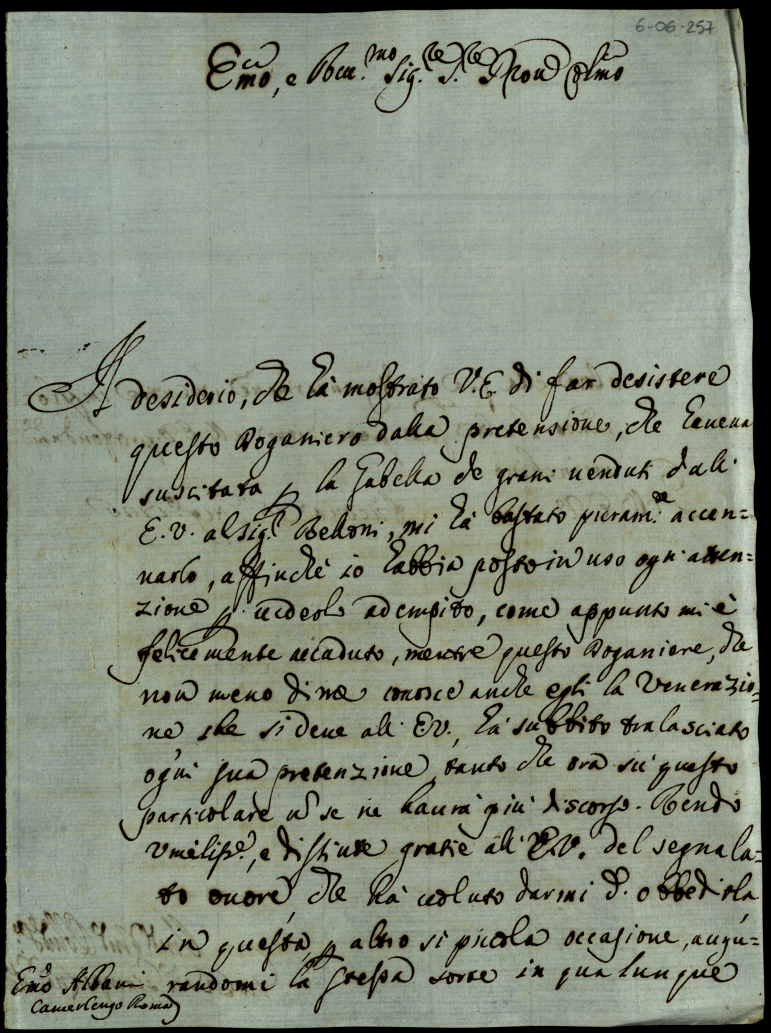 6-06-257
Emo, e Rmo. Sig.re S.re Pron Colmo
Il desiderio, che hà mostrato V.E. di far desistere
questo Doganiero dalla pretensione, che haueua
suscitata p la Gabella de grani uenduti dall'
E.V. al Sig.r Belloni, mi hà bastato puram.te accen=
narlo, affinche io habbia posto in uso ogni atten=
zione p uederlo adempito, come appunto mi è
felicemente accaduto, mentre questo Doganiere, che
non meno di me conosce anche egli la Venerazio=
ne che si deue all' E.V., hà subbito tralasciato
ogni sua pretenzione, tanto che ora sù questo
particolare n se ne haurà più discorso. Rendo
Vmeliss.e, e distinte gratie all' E.V. del segnala=
to onore, che hà uoluto darmi d' obbedirla
in questa, p altro si piccola occasione, augu=
randomi la stessa sorte in qualunque
Emo Albani
Camerlengo Roma